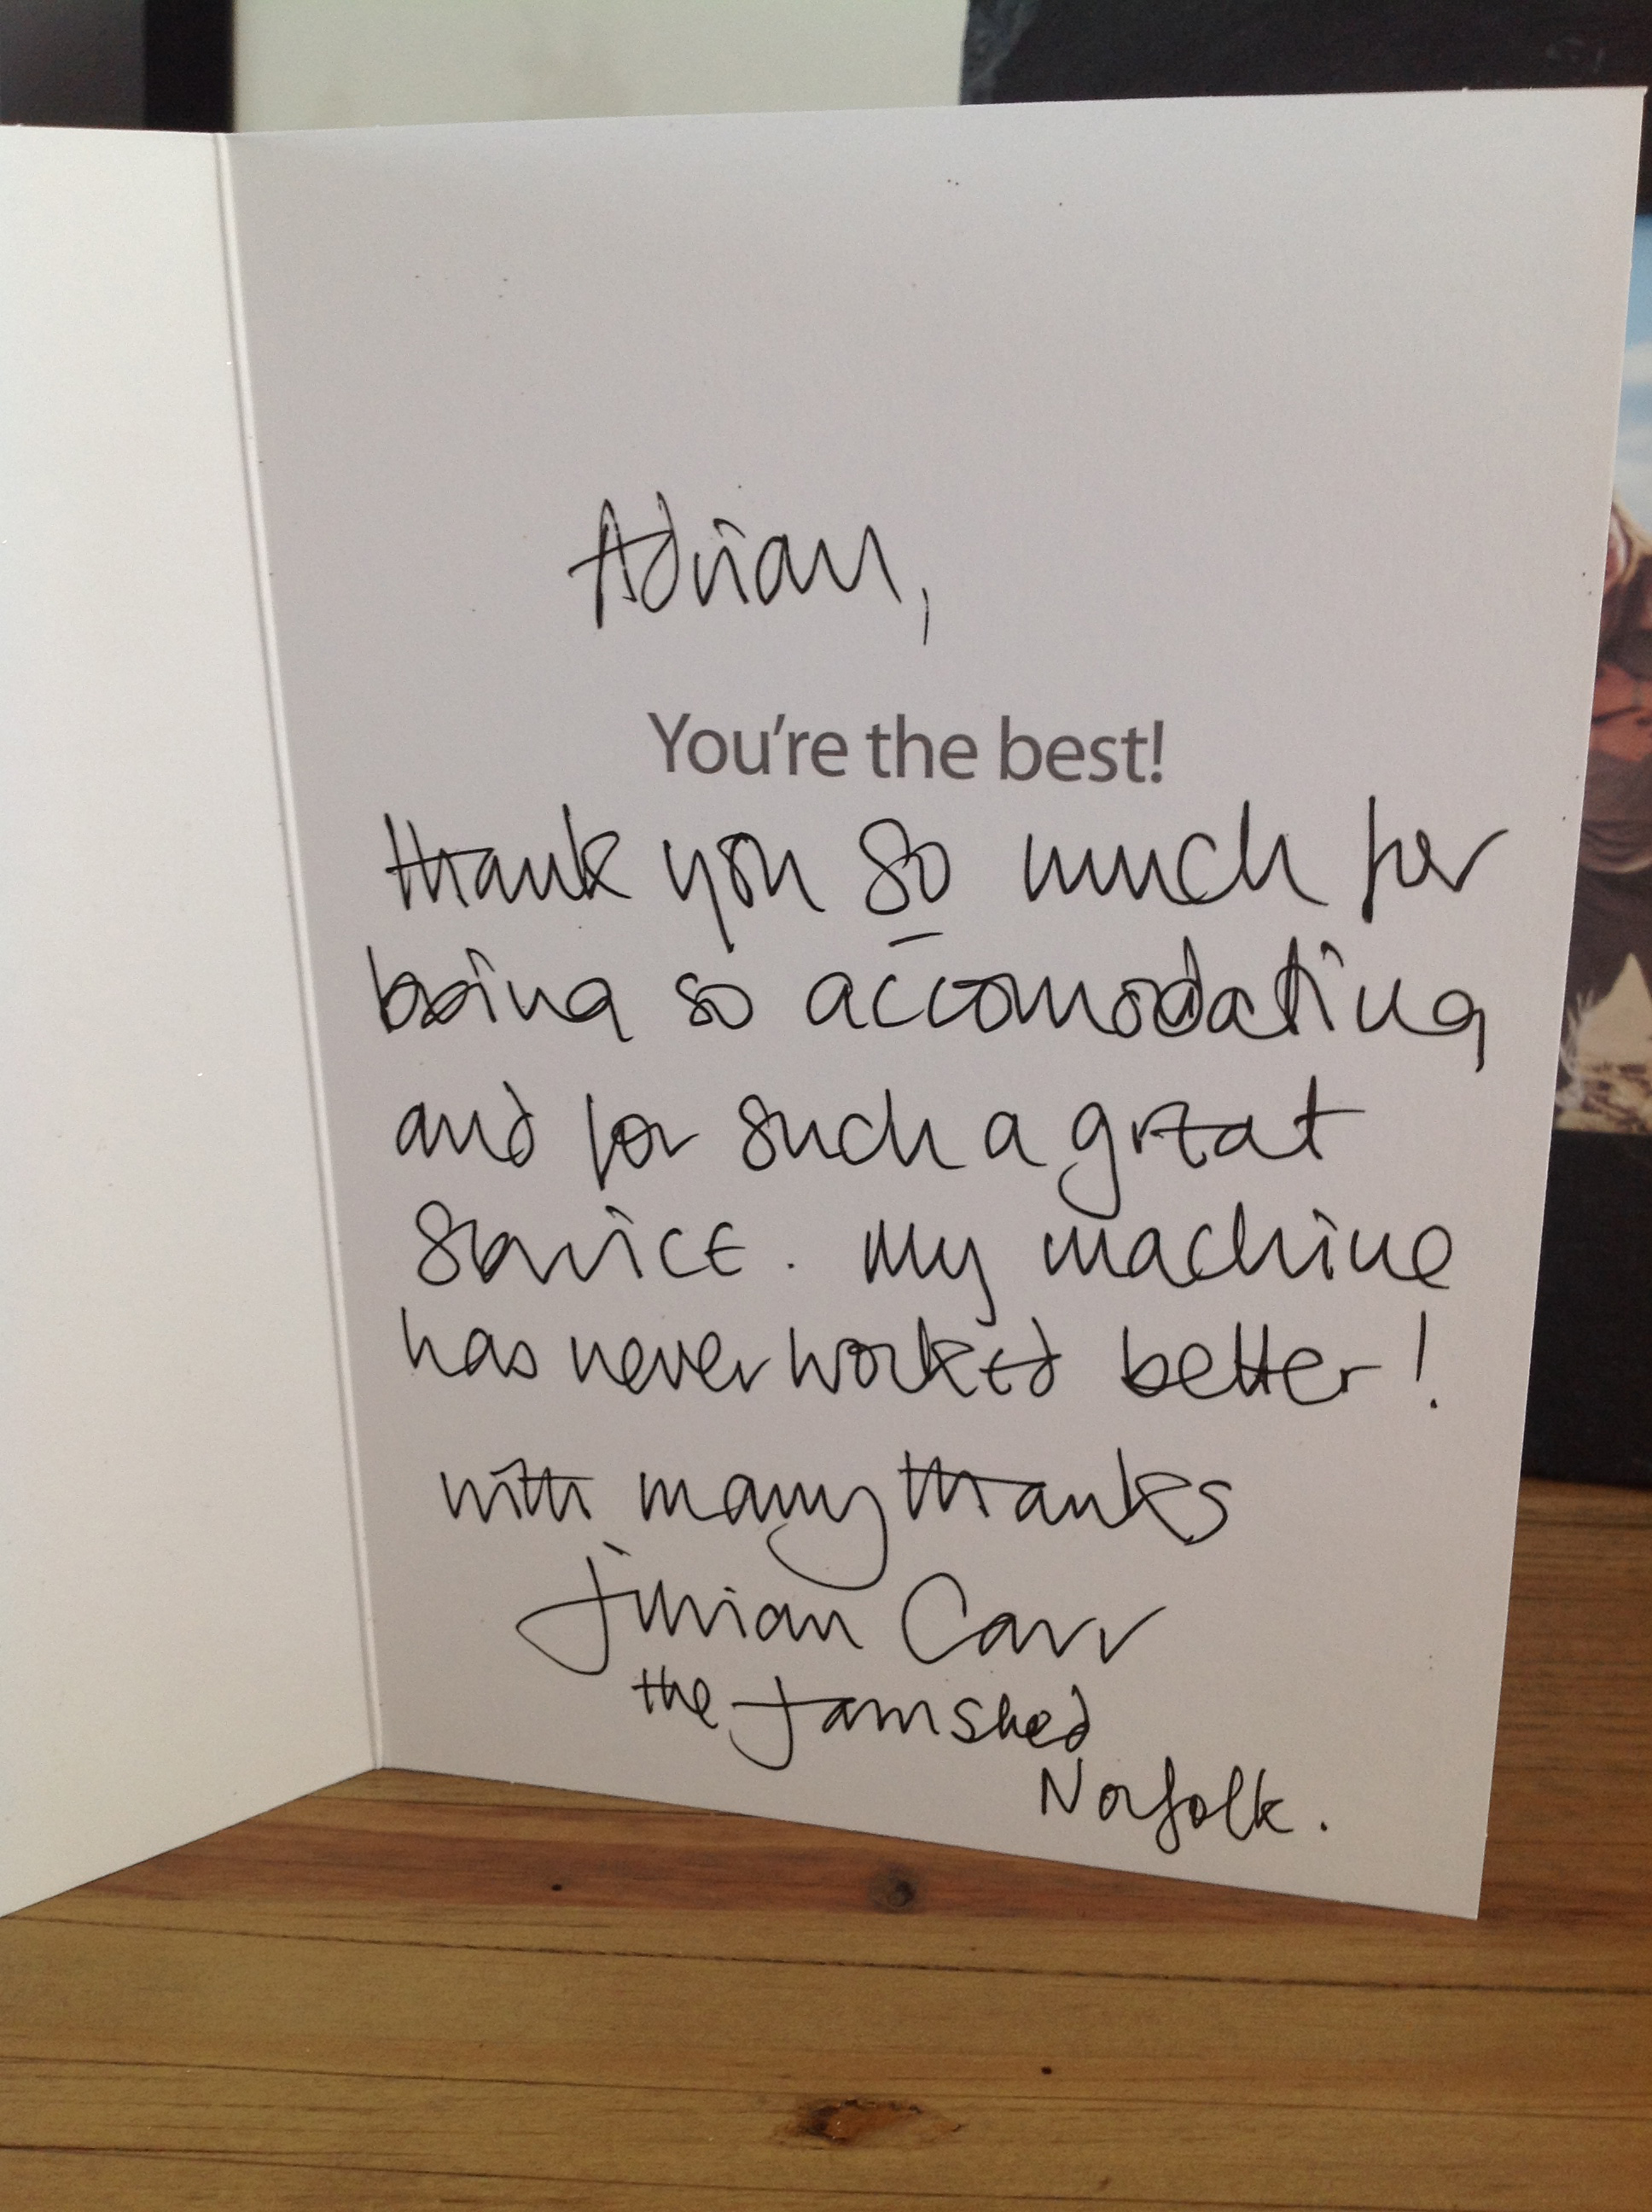 Adrian,
You're the best!
thank you so much for
being so accomodating
and for such a great
service. My machine
has never worked better!
with many thanks
Carr
the Jamshed
Norfolk.